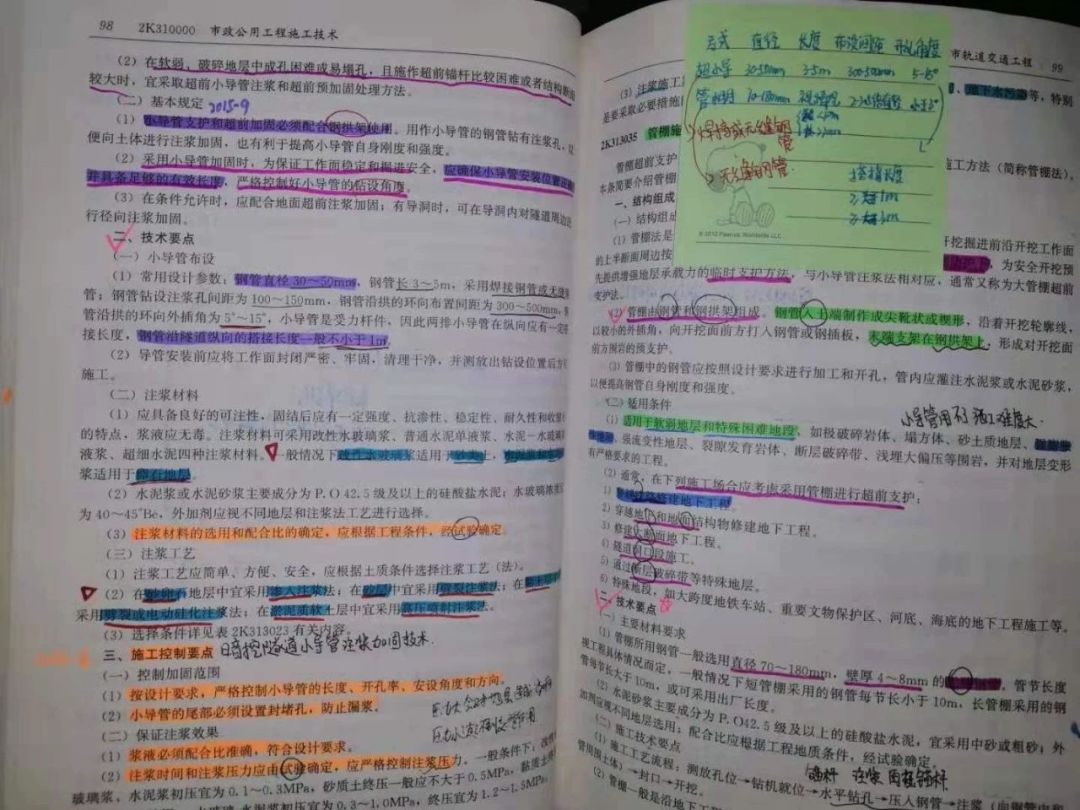 98 2K310000 市政公用工程施工技术
(2) 在软弱、破碎地层中成孔困难或易塌孔,且施作超前锚杆比较困难或者结构断面
较大时,宜采取超前小导管注浆和超前预加固处理方法。
(二) 基本规定 2015-9
(1) 小导管支护和超前加固必须配合钢拱架使用。用作小导管的钢管钻有注浆孔,以
便向土体进行注浆加固,也有利于提高小导管自身刚度和强度。
(2) 采用小导管加固时,为保证工作面稳定和掘进安全,应确保小导管安装位置
并具备足够的有效长度,严格控制好小导管的钻设角度。
(3) 在条件允许时,应配合地面超前注浆加固;有导洞时,可在导洞内对隧道周边进
行径向注浆加固。
二、技术要点
(一) 小导管布设
(1) 常用设计参数:钢管直径 30~50mm,钢管长 3~5m,采用焊接钢管或无缝
管;钢管钻设注浆孔间距为 100~150mm,钢管沿拱的环向布置间距为 300~500mm,
管沿拱的环向外插角为 5°~15°,小导管是受力杆件,因此两排小导管在纵向应有一定
接长度,钢管沿隧道纵向的搭接长度一般不小于 1m。
(2) 导管安装前应将工作面封闭严密、牢固,清理干净,并测放出钻设位置后方
施工。
(二) 注浆材料
(1) 应具备良好的可注性,固结后应有一定强度、抗渗性、稳定性、耐久性和收缩
的特点,浆液应无毒。注浆材料可采用改性水玻璃浆、普通水泥单液浆、水泥-水玻璃
液浆、超细水泥四种注浆材料。一般情况下改性水玻璃浆适用于砂类土,
浆适用于卵石地层。
(2) 水泥浆或水泥砂浆主要成分为 P.O 42.5 级及以上的硅酸盐水泥;水玻璃浓度
为 40~45°Be,外加剂应视不同地层和注浆法工艺进行选择。
(3) 注浆材料的选用和配合比的确定,应根据工程条件,经试验确定。
(三) 注浆工艺
(1) 注浆工艺应简单、方便、安全,应根据土质条件选择注浆工艺(法)。
(2) 在砂卵石地层中宜采用渗入注浆法;在砂层中宜采用劈裂注浆法;在黏土层中
采用劈裂或电动硅化注浆法;在淤泥质软土层中宜采用高压喷射注浆法。
(3) 选择条件详见表 2K313023 有关内容。
三、施工控制要点 暗挖隧道小导管注浆加固技术
(一) 控制加固范围
(1) 按设计要求,严格控制小导管的长度、开孔率、安设角度和方向。
(2) 小导管的尾部必须设置封堵孔,防止漏浆。
(二) 保证注浆效果
(1) 浆液必须配合比准确,符合设计要求。
(2) 注浆时间和注浆压力应由试验确定,应严格控制注浆压力。一般条件下:改性
玻璃浆、水泥浆初压宜为 0.1~0.3MPa,砂质土终压一般应不大于 0.5MPa,黏质土
初压宜为 0.3~1.0MPa,终压宜为 1.2~1.5MPa
方式 直径 长度 布设间距 外插角度
超小导 30-50mm 3-5m 300-500mm 5-15°
管棚 70-180mm
焊接或无缝钢管
无缝钢管
搭接长度
© 2012 Peanuts Worldwide LLC
市轨道交通工程 99
(3) 注浆施工
是要采取必要措施 地下水污染等,特别
2K313035 管棚施
管棚超前支护 施工方法(简称管棚法)。
本条简要介绍管棚
一、结构组成
(一) 结构组成
(1) 管棚法是 开挖掘进前沿开挖工作面
的上半断面周边按 为安全开挖预
先提供增强地层承载力的临时支护方法,与小导管注浆法相对应,通常又称为大管棚超前
支护法。
(2) 管棚由钢管和钢拱架组成。钢管入土端制作成尖靴状或楔形,沿着开挖轮廓线,
以较小的外插角,向开挖面前方打入钢管或钢插板,末端支架在钢拱架上,形成对开挖面
前方围岩的预支护。
(3) 管棚中的钢管应按照设计要求进行加工和开孔,管内应灌注水泥浆或水泥砂浆,
以便提高钢管自身刚度和强度。
(二) 适用条件 小导管用不 施工难度大.
(1) 适用于软弱地层和特殊困难地段,如极破碎岩体、塌方体、砂土质地层、
强流变性地层、裂隙发育岩体、断层破碎带、浅埋大偏压等围岩,并对地层变形
有严格要求的工程。
(2) 通常,在下列施工场合应考虑采用管棚进行超前支护:
1) 修建地下工程。
2) 穿越地下和地面结构物修建地下工程。
3) 修建大断面地下工程。
4) 隧道洞口段施工。
5) 通过断层破碎带等特殊地层。
6) 特殊地段,如大跨度地铁车站、重要文物保护区、河底、海底的地下工程施工等。
二、技术要点
(一) 主要材料要求
(1) 管棚所用钢管一般选用直径 70~180mm,壁厚 4~8mm 的 管节长度
视工程具体情况而定,一般情况下短管棚采用的钢管每节长小于 10m,长管棚采用的钢
管每节长大于 10m,或可采用出厂长度。
(2) 水泥砂浆主要成分为 P.O42.5 级及以上的硅酸盐水泥,宜采用中砂或粗砂;外
加剂应视不同地层选用;配合比应根据工程地质条件,经试验确定。
(二) 施工技术要点
(1) 施工工艺流程:测放孔位→钻机就位→水平钻孔→压入钢管→
管周围土体)→封口→开挖。
(2) 管棚一般是沿地下工